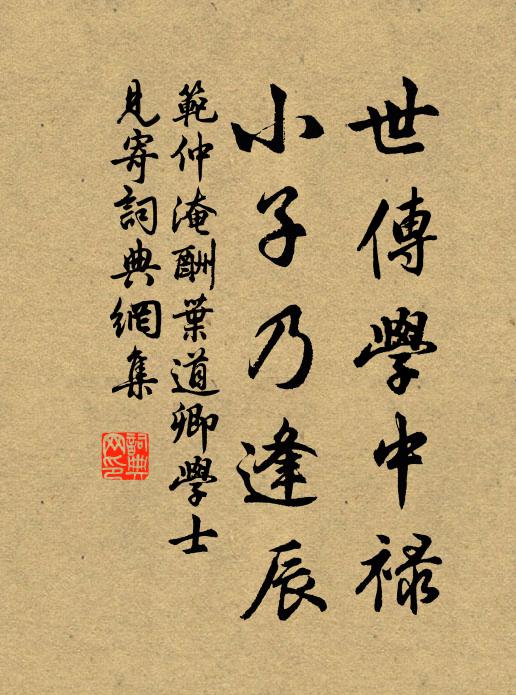 世傳學中祿
小子乃逢辰
範仲淹酬葉道卿學士
見寄詞典網集
詞典网印